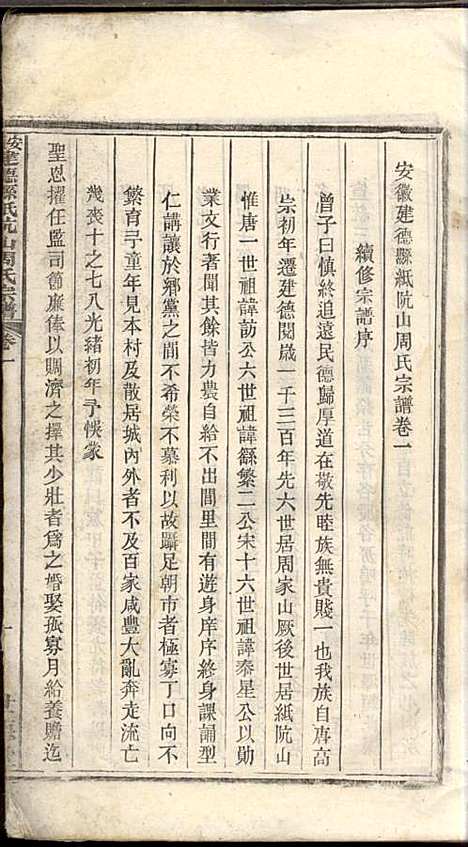 安徽建德縣紙阬山周氏宗譜卷一
續修宗譜序
曾子曰慎終追遠民德歸厚道在敬先睦族無貴賤一也我族自唐高
宗初年遷建德閱歲一千三百年先六世居周家山厥後世居紙阬山
惟唐一世祖諱訪公六世祖諱繇繁二公宋十六世祖諱泰星公以勛
業文行著聞其餘皆力農自給不出閭里間有遊身庠序終身課誦型
仁講讓於鄉黨之間不希榮不慕利以故躡足朝市者極寡丁口向不
繁育予童年見本村及散居城內外者不及百家咸豐大亂奔走流亡
幾喪十之七八光緒初年予悞蒙
聖恩擢任監司節廉俸以賙濟之擇其少壯者為之婚娶孤寡月給養贍迄
安建德縣紙阬山周氏宗譜
卷一